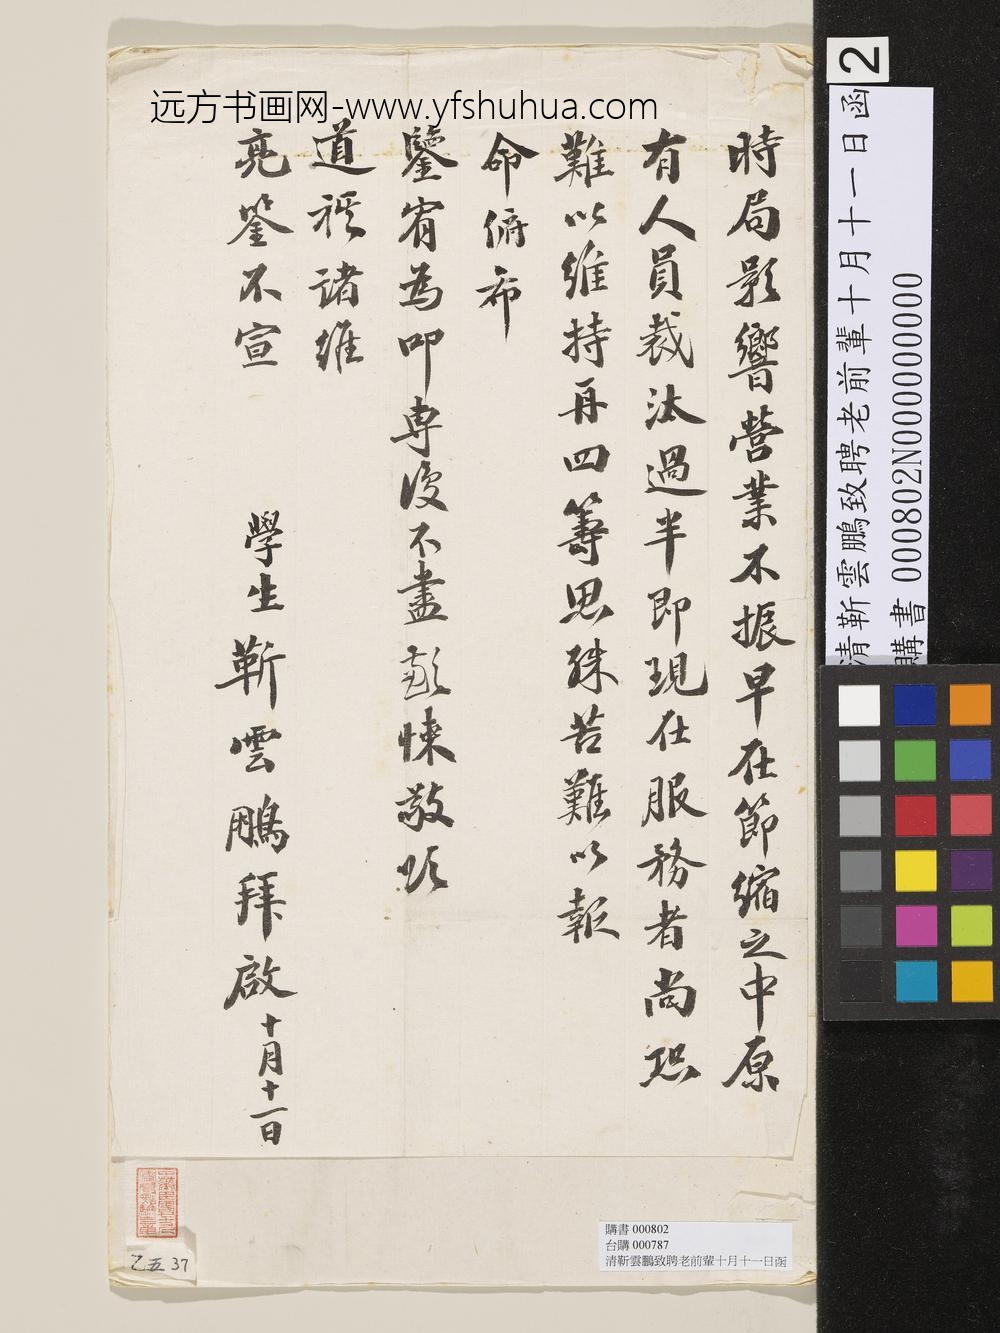 远方书画网-www.yfshuhua.com
時局影響營業不振早在節縮之中原
有人員裁汰過半即現在服務者尚恐
難以維持再四籌思殊苦難以報
命俯布
鑒宥為叩專復不盡歉悚敬頌
道祺諸維
亮詧不宣
學生靳雲鵬拜啟十月十一日
2
清靳雲鵬致聘老前輩十月十一日函
購書 000802N000000000
購書 000802
台購 000787
清靳雲鵬致聘老前輩十月十一日函
乙五 37